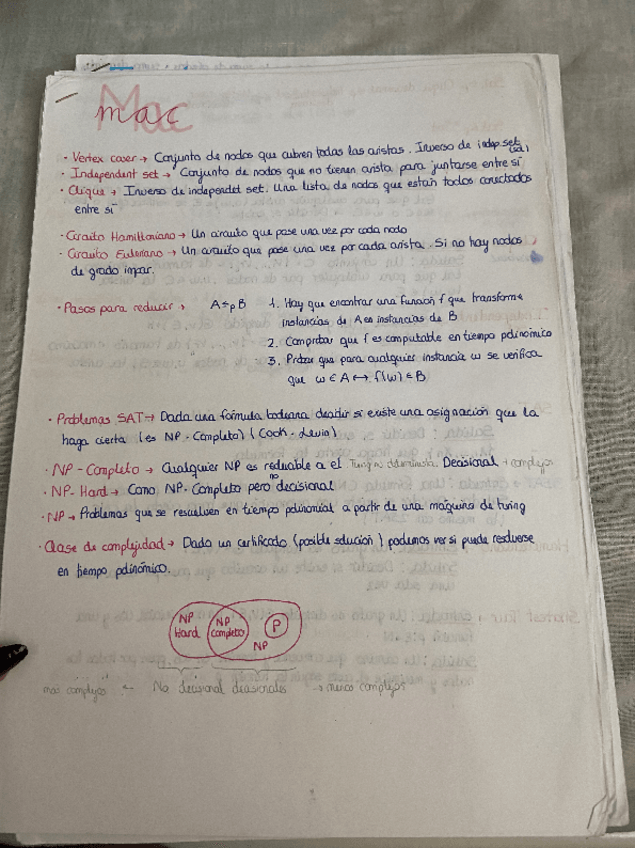 Mac
mac
· Vertex cover → Conjunto de nodos que cubren todas las aristas. Inverso de indep. set.
· Independent set → Conjunto de nodos que no tienen arista para juntarse entre sí
· Clique → Inverso de independet set. Una lista de nodos que estan todos conectados
entre sí
· Circuito Hamiltoniano → Un circuito que pase una vez por cada nodo
· Circuito Euleriano → Un circuito que pase una vez por cada arista. Si no hay nodos
de grado impar.
· Pasos para reducir → A ≤p B 1. Hay que encontrar una función f que transforme
instancias de A en instancias de B
2. Comprobar que f es computable en tiempo polinómico
3. Probar que para cualquier instancia w se verifica
que w ∈ A ↔ f(w) ∈ B
· Problemas SAT → Dada una formula booleana decidir si existe una asignación que la
haga cierta (es NP-Completo) (Cook-Levin)
· NP-Completo → Cualquier NP es reducible a el Decisional
· NP-Hard → Como NP-Completo pero no decisional
· NP → Problemas que se resuelven en tiempo polinomial a partir de una maquina de turing
· Clase de complejidad → Dado un certificado (posible solución) podemos ver si puede resolverse
en tiempo polinómico.
NP Hard
NP Completo
P
NP
mas complejos ← No decisional decisionales → menos complejos